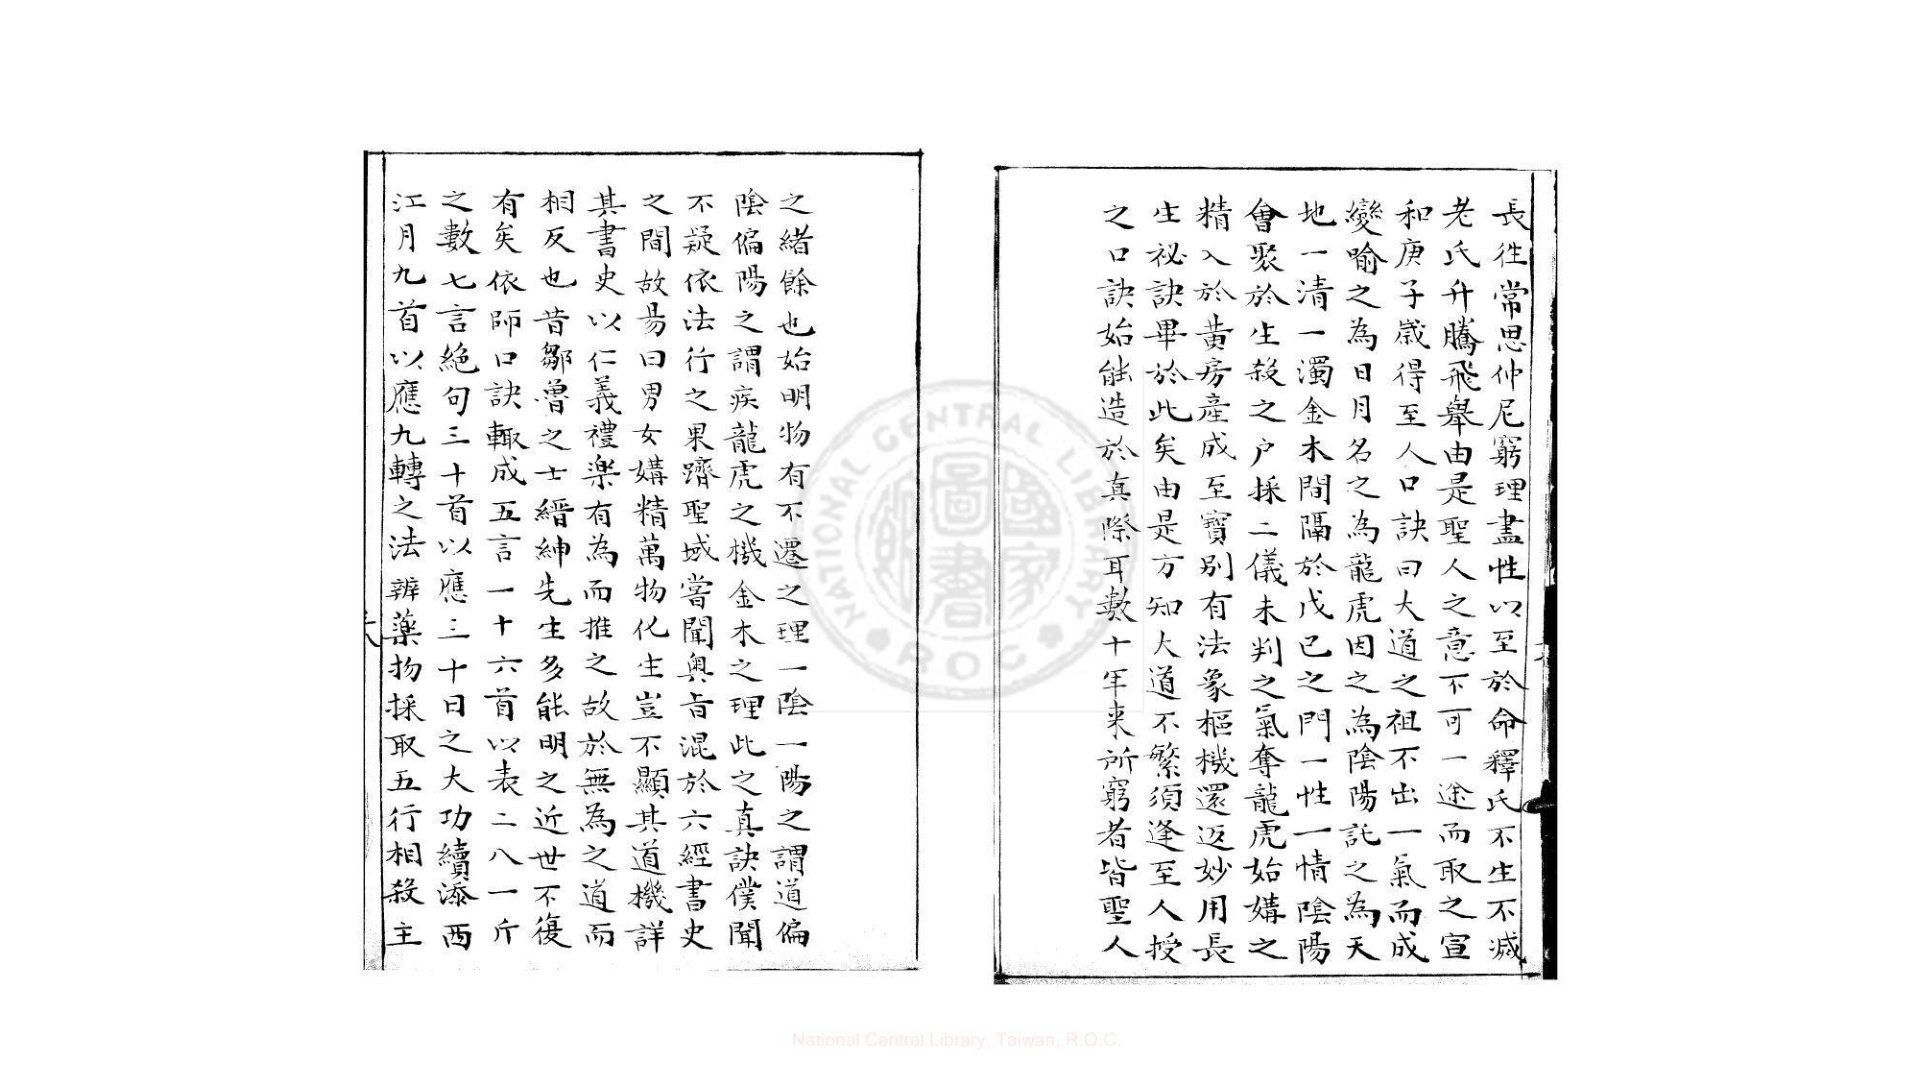 長徃常思仲尼窮理盡性以至於命釋氏不生不滅
老氏升騰飛舉由是聖人之意不可一途而取之宣
和庚子歲得至人口訣曰大道之祖不出一氣而成
變喻之為日月名之為龍虎因之為陰陽託之為天
地一清一濁金木間隔於戊巳之門一性一情陰陽
會聚於生殺之户採二儀未判之氣奪龍虎始媾之
精入於黄房產成至寶别有法象樞機還返妙用長
生祕訣畢於此矣由是方知大道不繁須逢至人授
之口訣始能造於真際耳數十年来所窮者皆聖人
之緒餘也始明物有不遷之理一陰一陽之謂道偏
陰偏陽之謂疾龍虎之機金木之理此之真訣僕聞
不疑依法行之果躋聖域嘗聞奥旨混於六經書史
之間故昜曰男女媾精萬物化生豈不顯其道機詳
其書史以仁義禮楽有為而推之故於無為之道而
相反也昔鄒曽之士縉紳先生多能明之近世不復
有矣依師口訣輙成五言一十六首以表二八一斤
之數七言絶句三十首以應三十日之大功續添西
江月九首以應九轉之法辨薬物採取五行相殺主
NATIONAL CENTRAL LIBRARY
R.O.C
國家圖書館
National Central Library, Taiwan, R.O.C.